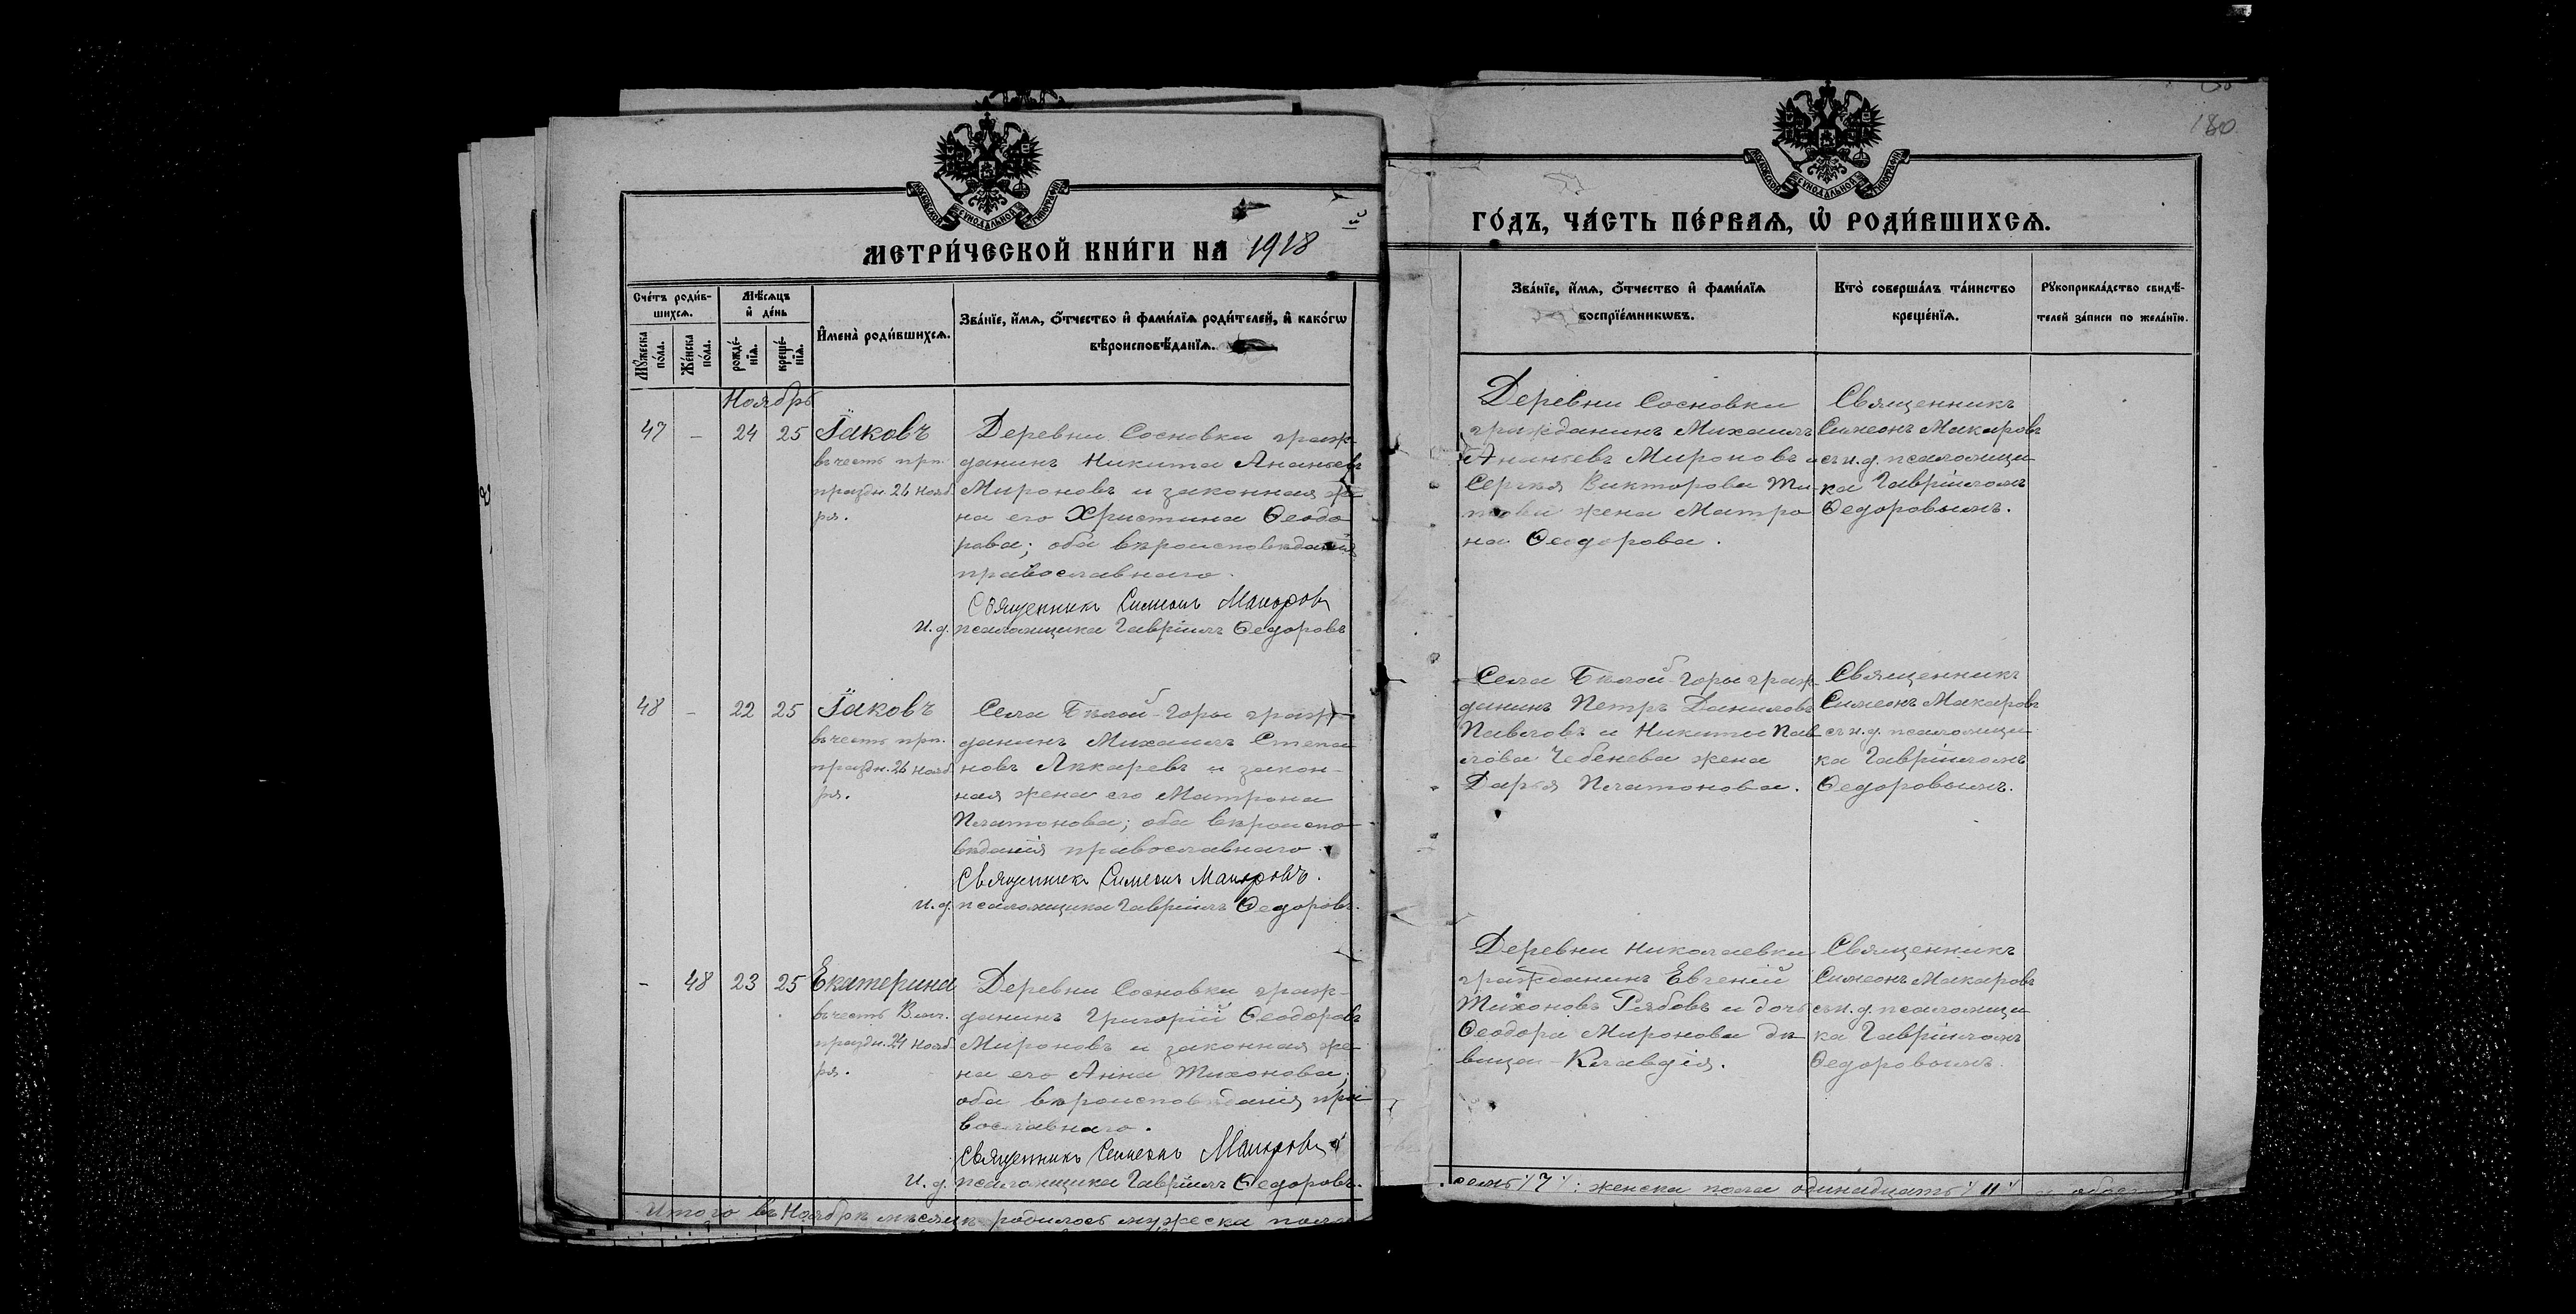 180
МОСКОВСКОЙ СѴНОДАЛЬНОЙ ТИПОГРАФІИ
МОСКОВСКОЙ СѴНОДАЛЬНОЙ ТИПОГРАФІИ
МЕТРИ́ЧЕСКОЙ КНИ́ГИ НА 1918
ГО́ДЪ, ЧА́СТЬ ПЕ́РВАѦ, Ѡ҆ РОДИ́ВШИХСѦ.
Сче́тъ роди́в-
шихсѧ.
Мꙋ́жеска
по́ла.
Же́нска
по́ла.
Мѣ́сѧцъ
и҆ де́нь
рожде́-
нїѧ.
креще́-
нїѧ.
И҆мена̀ роди́вшихсѧ.
Зва́нїе, и҆́мѧ, ѻ҆́тчество и҆ фами́лїѧ роди́телей, и҆ како́гѡ
вѣроисповѣ́данїѧ.
Зва́нїе, и҆́мѧ, ѻ҆́тчество и҆ фами́лїѧ
воспрїе́мникѡвъ.
Кто̀ соверша́лъ та́инство
креще́нїѧ.
Рꙋкоприкла́дство свидѣ́-
телей за́писи по жела́нїю.
Ноябрь
47
-
24
25
Іаковъ
въ честь прп.
праздн. 26 нояб
ря.
Деревни Сосновки граж-
данинъ Никита Ананьевъ
Мироновъ и законная же
на его Христина Ѳеодо
рова; оба вѣроисповѣданія
православнаго.
Священникъ Симеонъ Макаровъ
И. д. псаломщика Гавріилъ Ѳедоровъ
Деревни Сосновки
гражданинъ Михаилъ
Ананьевъ Мироновъ и
Сергѣя Викторова Ти-
това жена Матро
на Ѳеодорова.
Священникъ
Симеонъ Макаровъ
съ и. д. псаломщи
ка Гавріиломъ
Ѳедоровымъ.
48
-
22
25
Іаковъ
въ честь прп.
праздн. 26 нояб
ря.
Села Бѣлой-Горы граж-
данинъ Михаилъ Степа
новъ Лѣкаревъ и закон-
ная жена его Матрона
Платонова; оба вѣроиспо
вѣданія православнаго.
Священникъ Симеонъ Макаровъ.
И. д. псаломщика Гавріилъ Ѳедоровъ.
Села Бѣлой-Горы граж-
данинъ Петръ Даниловъ
Павловъ и Никиты Пав
лова Чебенева жена
Дарья Платонова.
Священникъ
Симеонъ Макаровъ
съ и. д. псаломщи
ка Гавріиломъ
Ѳедоровымъ.
-
48
23
25
Екатерина
въ честь Вмч.
праздн. 24 нояб
ря.
Деревни Сосновки граж-
данинъ Григорій Ѳеодоровъ
Мироновъ и законная же
на его Анна Тихонова;
оба вѣроисповѣданія пра
вославнаго.
Священникъ Симеонъ Макаровъ
И. д. псаломщика Гавріилъ Ѳедоровъ.
Деревни Николаевки
гражданинъ Евгеній
Тихоновъ Рябовъ и дочь
Ѳеодора Миронова дѣ
вица Клавдія.
Священникъ
Симеонъ Макаровъ
съ и. д. псаломщи
ка Гавріиломъ
Ѳедоровымъ.
Итого въ Ноябрѣ мѣсяцѣ родилось мужеска пола
семь /7/: женска пола одинадцать /11/